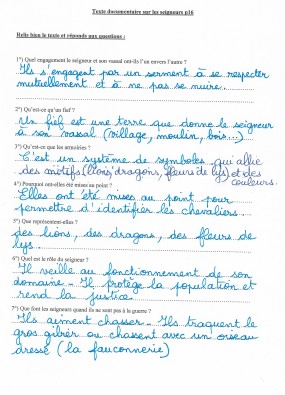 Texte documentaire sur les seigneurs p16
Relis bien le texte et réponds aux questions :
1°) Quel engagement le seigneur et son vassal ont-ils l'un envers l'autre ?
Ils s'engagent par un serment à se respecter
mutuellement et à ne pas se nuire.
2°) Qu'est-ce qu'un fief ?
Un fief est une terre que donne le seigneur
à son vassal (village, moulin, bois...)
3°) Qu'est-ce que les armoiries ?
C'est un système de symboles qui allie
des motifs (lions, dragons, fleurs de lys) et des
couleurs.
4°) Pourquoi ont-elles été mises au point ?
Elles ont été mises au point pour
permettre d'identifier les chevaliers.
5°) Que représentent-elles ?
des lions, des dragons, des fleurs de
lys.
6°) Quel est le rôle du seigneur ?
Il veille au fonctionnement de son
domaine. Il protège la population et
rend la justice.
7°) Que font les seigneurs quand ils ne sont pas à la guerre ?
Ils aiment chasser. Ils traquent le
gros gibier ou chassent avec un oiseau
dressé (la fauconnerie)